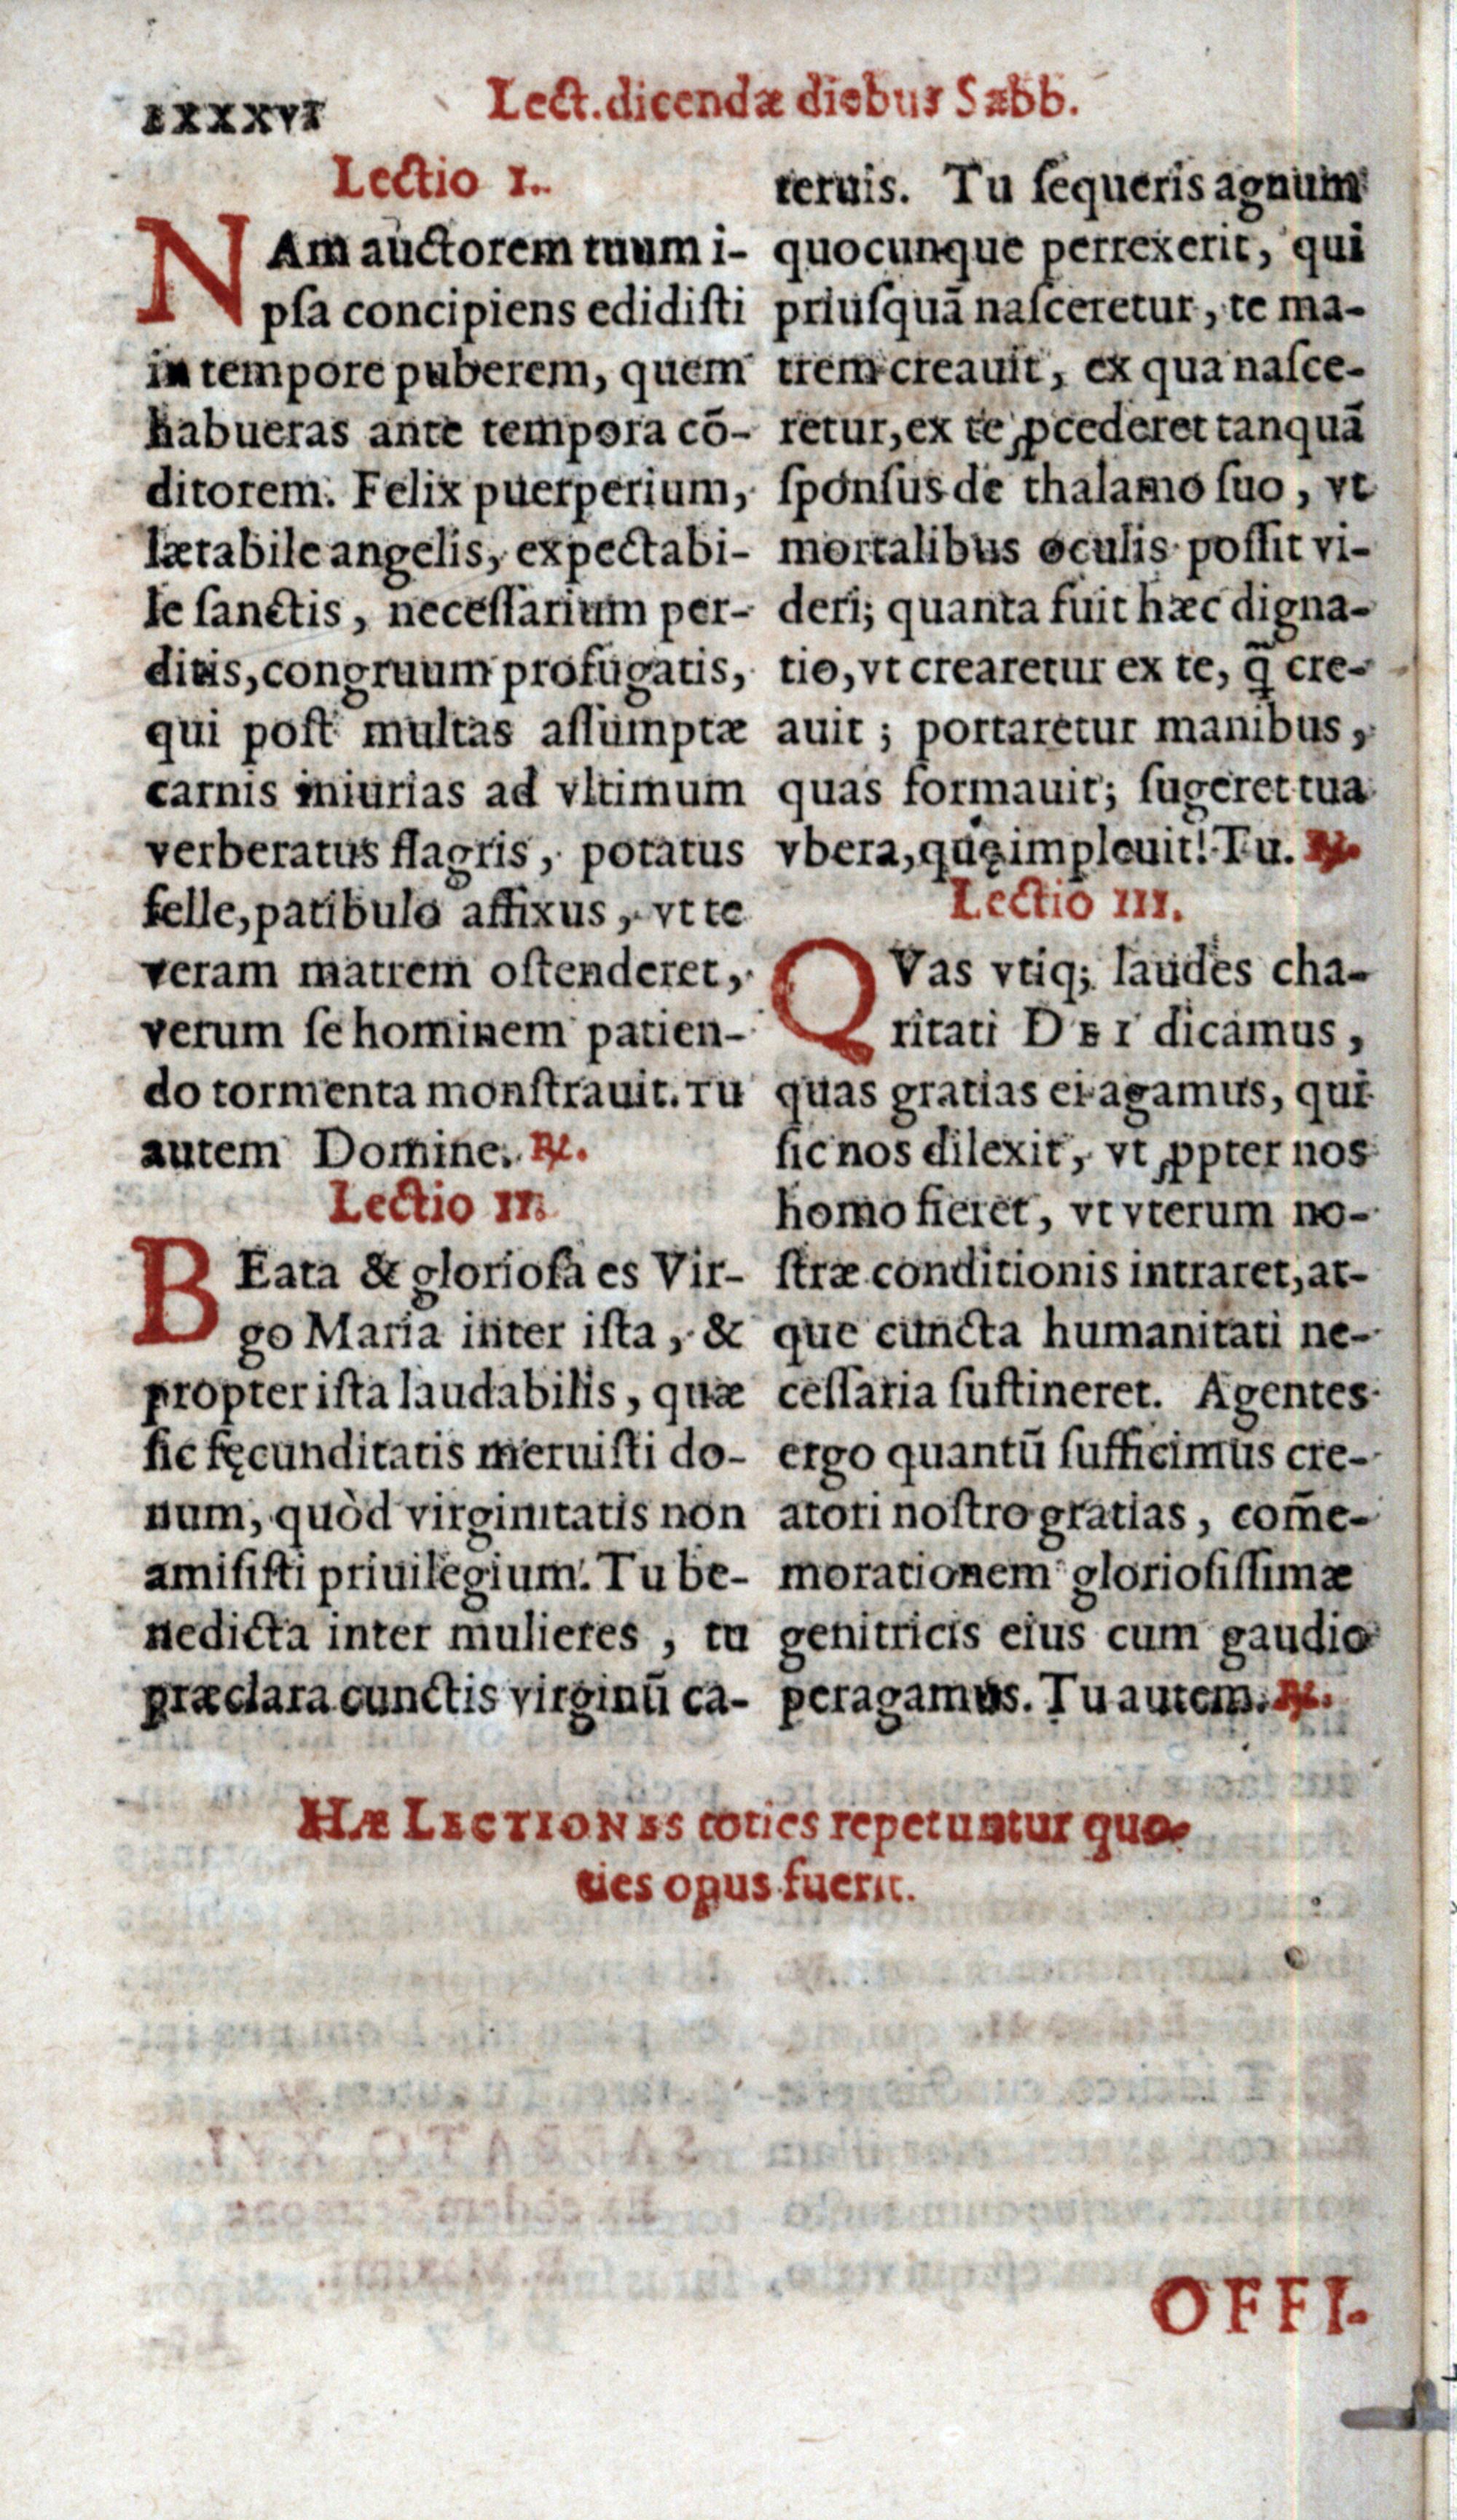 lxxxvi
Lect. dicendæ diebus Sabb.
Lectio I.
NAm auctorem tuum i-
pſa concipiens edidiſti
in tempore puberem, quem
habueras ante tempora cō-
ditorem. Felix puerperium,
lætabile angelis, expectabi-
le ſanctis, neceſſarium per-
ditis, congruum profugatis,
qui poſt multas aſſumptæ
carnis iniurias ad vltimum
verberatus flagris, potatus
felle, patibulo affixus, vt te
veram matrem oſtenderet,
verum ſe hominem patien-
do tormenta monſtrauit. Tu
autem Domine. ℟.
Lectio II.
BEata & glorioſa es Vir-
go Maria inter iſta, &
propter iſta laudabilis, quæ
ſic fęcunditatis meruiſti do-
num, quòd virginitatis non
amiſiſti priuilegium. Tu be-
nedicta inter mulieres, tu
præclara cunctis virginū ca-
teruis. Tu ſequeris agnum
quocunque perrexerit, qui
priuſquā naſceretur, te ma-
trem creauit, ex qua naſce-
retur, ex te ꝓcederet tanquā
ſponſus de thalamo ſuo, vt
mortalibus oculis poſſit vi-
deri; quanta fuit hæc digna-
tio, vt crearetur ex te, q̄ cre-
auit; portaretur manibus,
quas formauit; ſugeret tua
vbera, quę impleuit! Tu. ℟.
Lectio III.
QVas vtiq; laudes cha-
ritati DEI dicamus,
quas gratias ei agamus, qui
ſic nos dilexit, vt ꝓpter nos
homo fieret, vt vterum no-
ſtræ conditionis intraret, at-
que cuncta humanitati ne-
ceſſaria ſuſtineret. Agentes
ergo quantū ſufficimus cre-
atori noſtro gratias, com̄e-
morationem glorioſiſſimæ
genitricis eius cum gaudio
peragamus. Tu autem. ℟.
HÆ LECTIONES toties repetuntur quo-
ties opus fuerit.
OFFI-